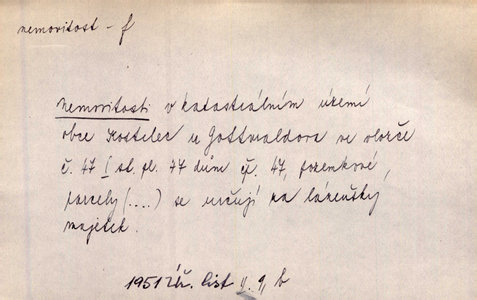 nemovitost - f
nemovitosti v katastrálním území
obce Kostelec u Gottwaldova ve vložce
č. 47 I sl. pl. 47 dům čp. 47, pozemkové
parcely (....) se určují za lázeňský
majetek.
1951 Úř. list y. 9, b